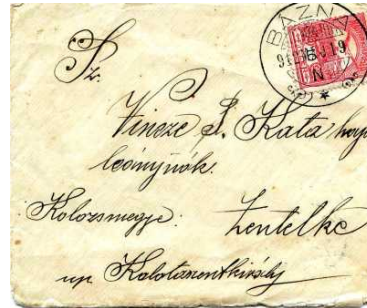 BÁZNA
Sz.
Vincze S. Kata
leánynák.
Kolozsmegye. Zentelke
up. Kalotaszentkirály